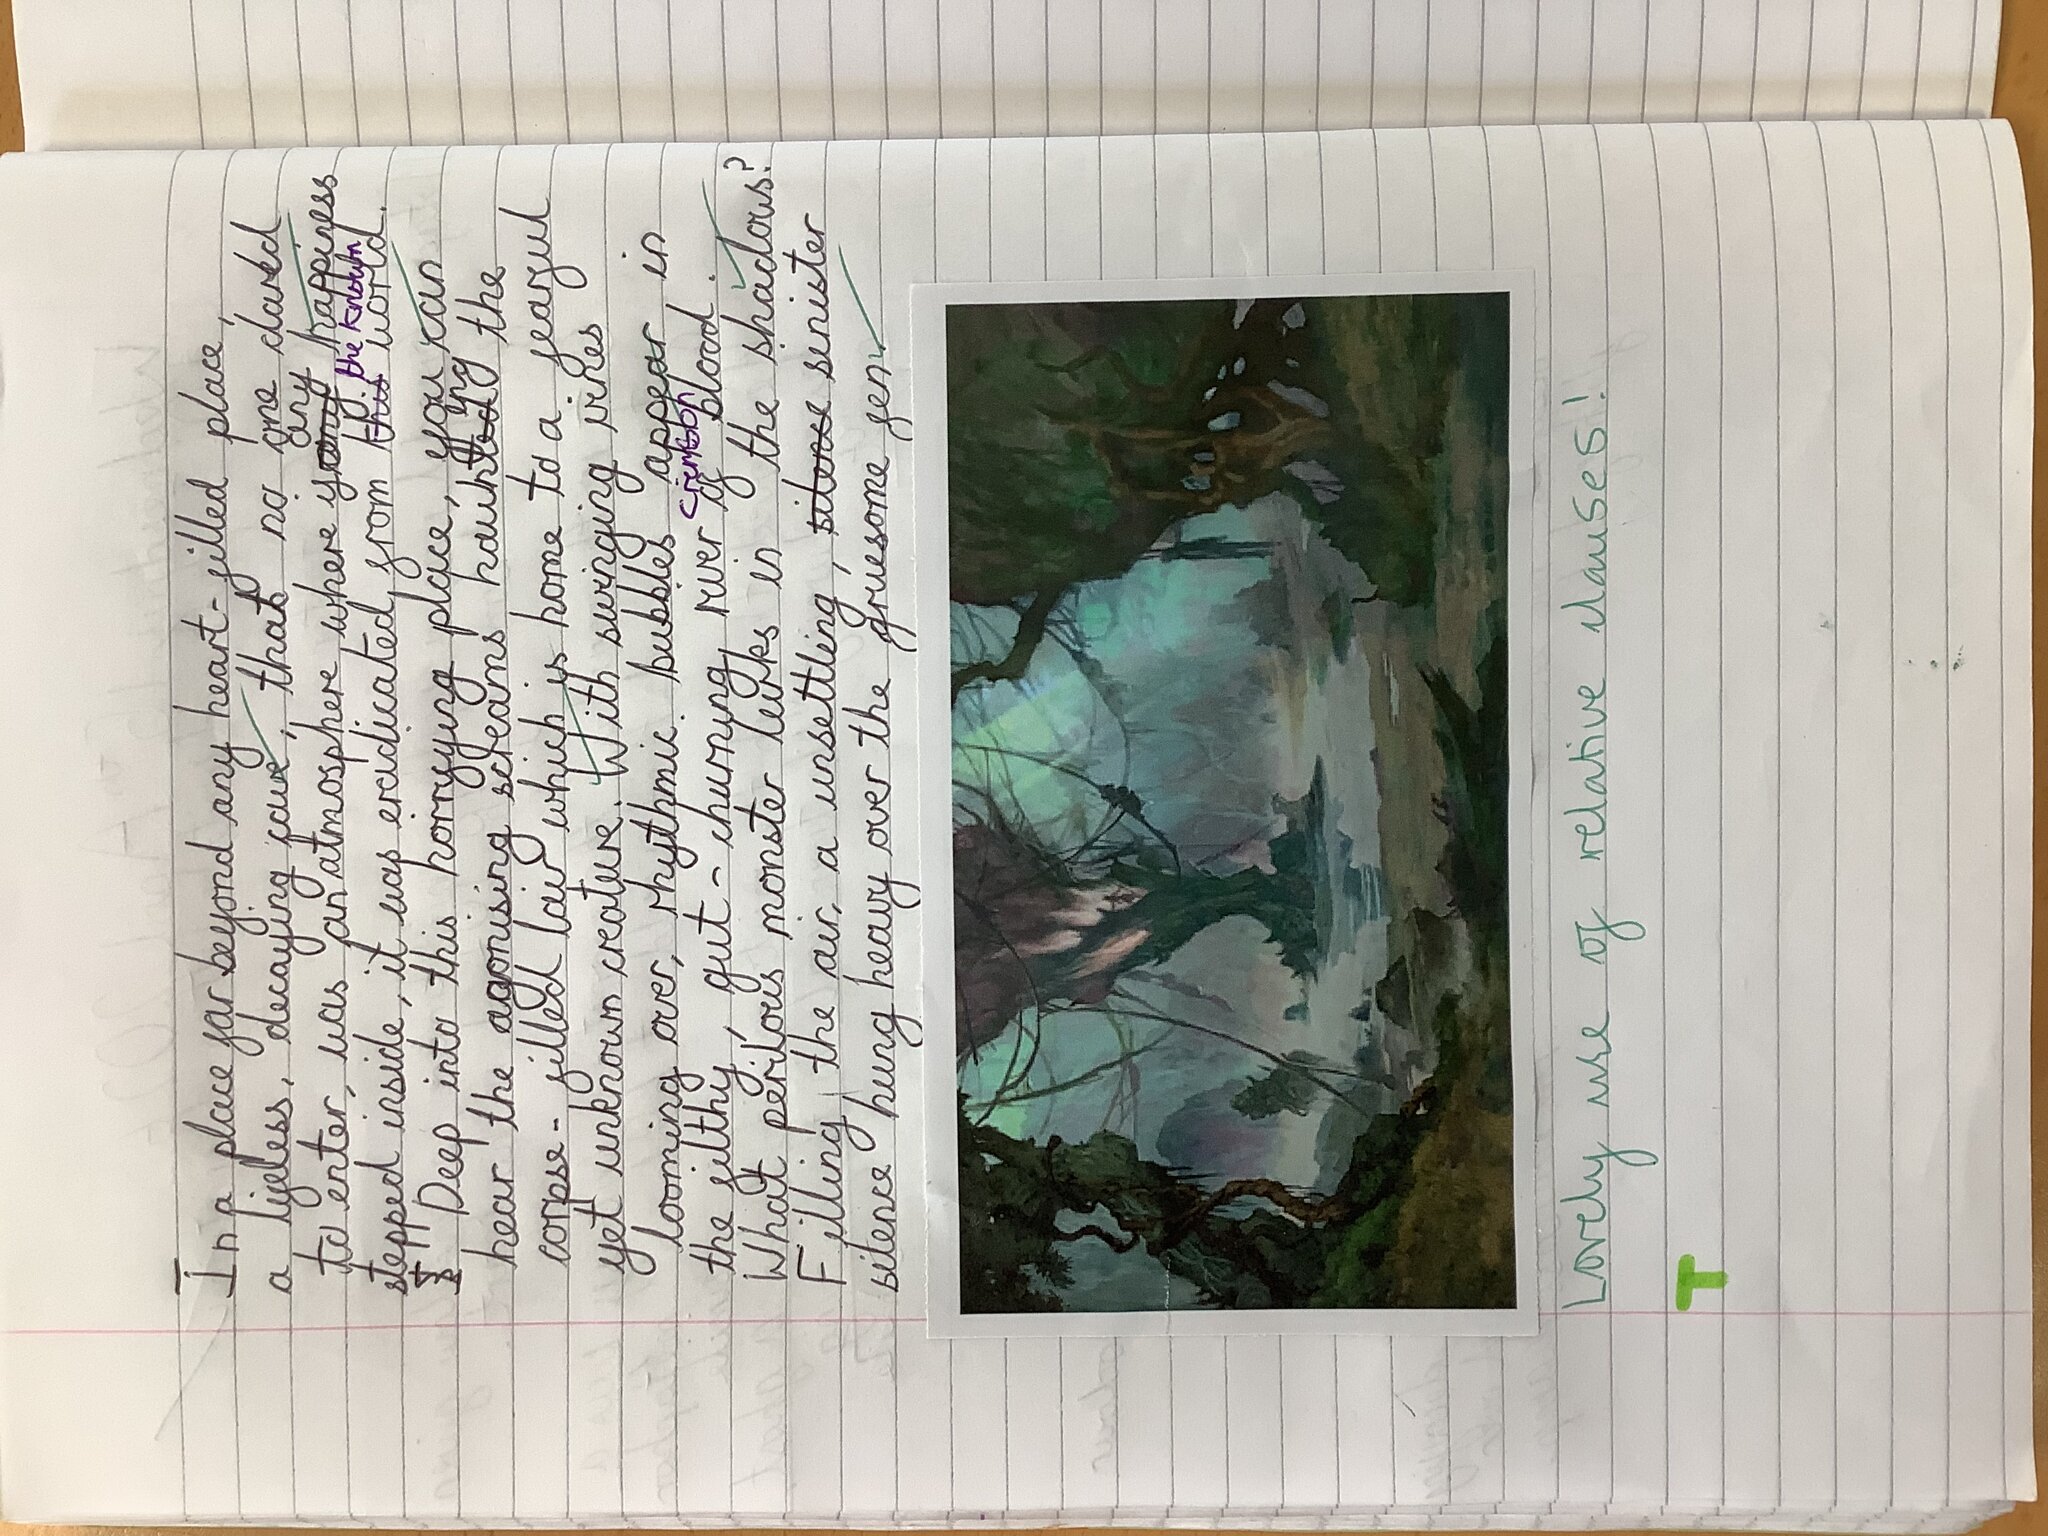 In a place far beyond any heart-filled place,
a lifeless, decaying cave, that no one dared
to enter, was an atmosphere where any happiness
stepped inside, it was eradicated from the known world.
Deep into this horrying place, you can
hear the agonising screams haunting the
corpse-filled lair which is home to a fearful
yet unknown creature. With swinging vines
looming over, rhythmic bubbles appear in
the filthy, gut-churning river of crimson blood.
What perilous monster lurks in the shadows?
Filling the air, a unsettling, sinister
silence hung heavy over the gruesome fen.
Lovely use of relative clauses!
T